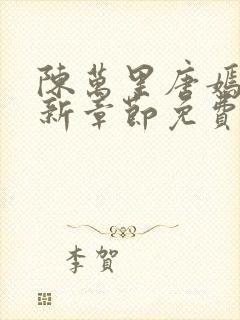 陳萬里唐嫣
新章節免費
李賀